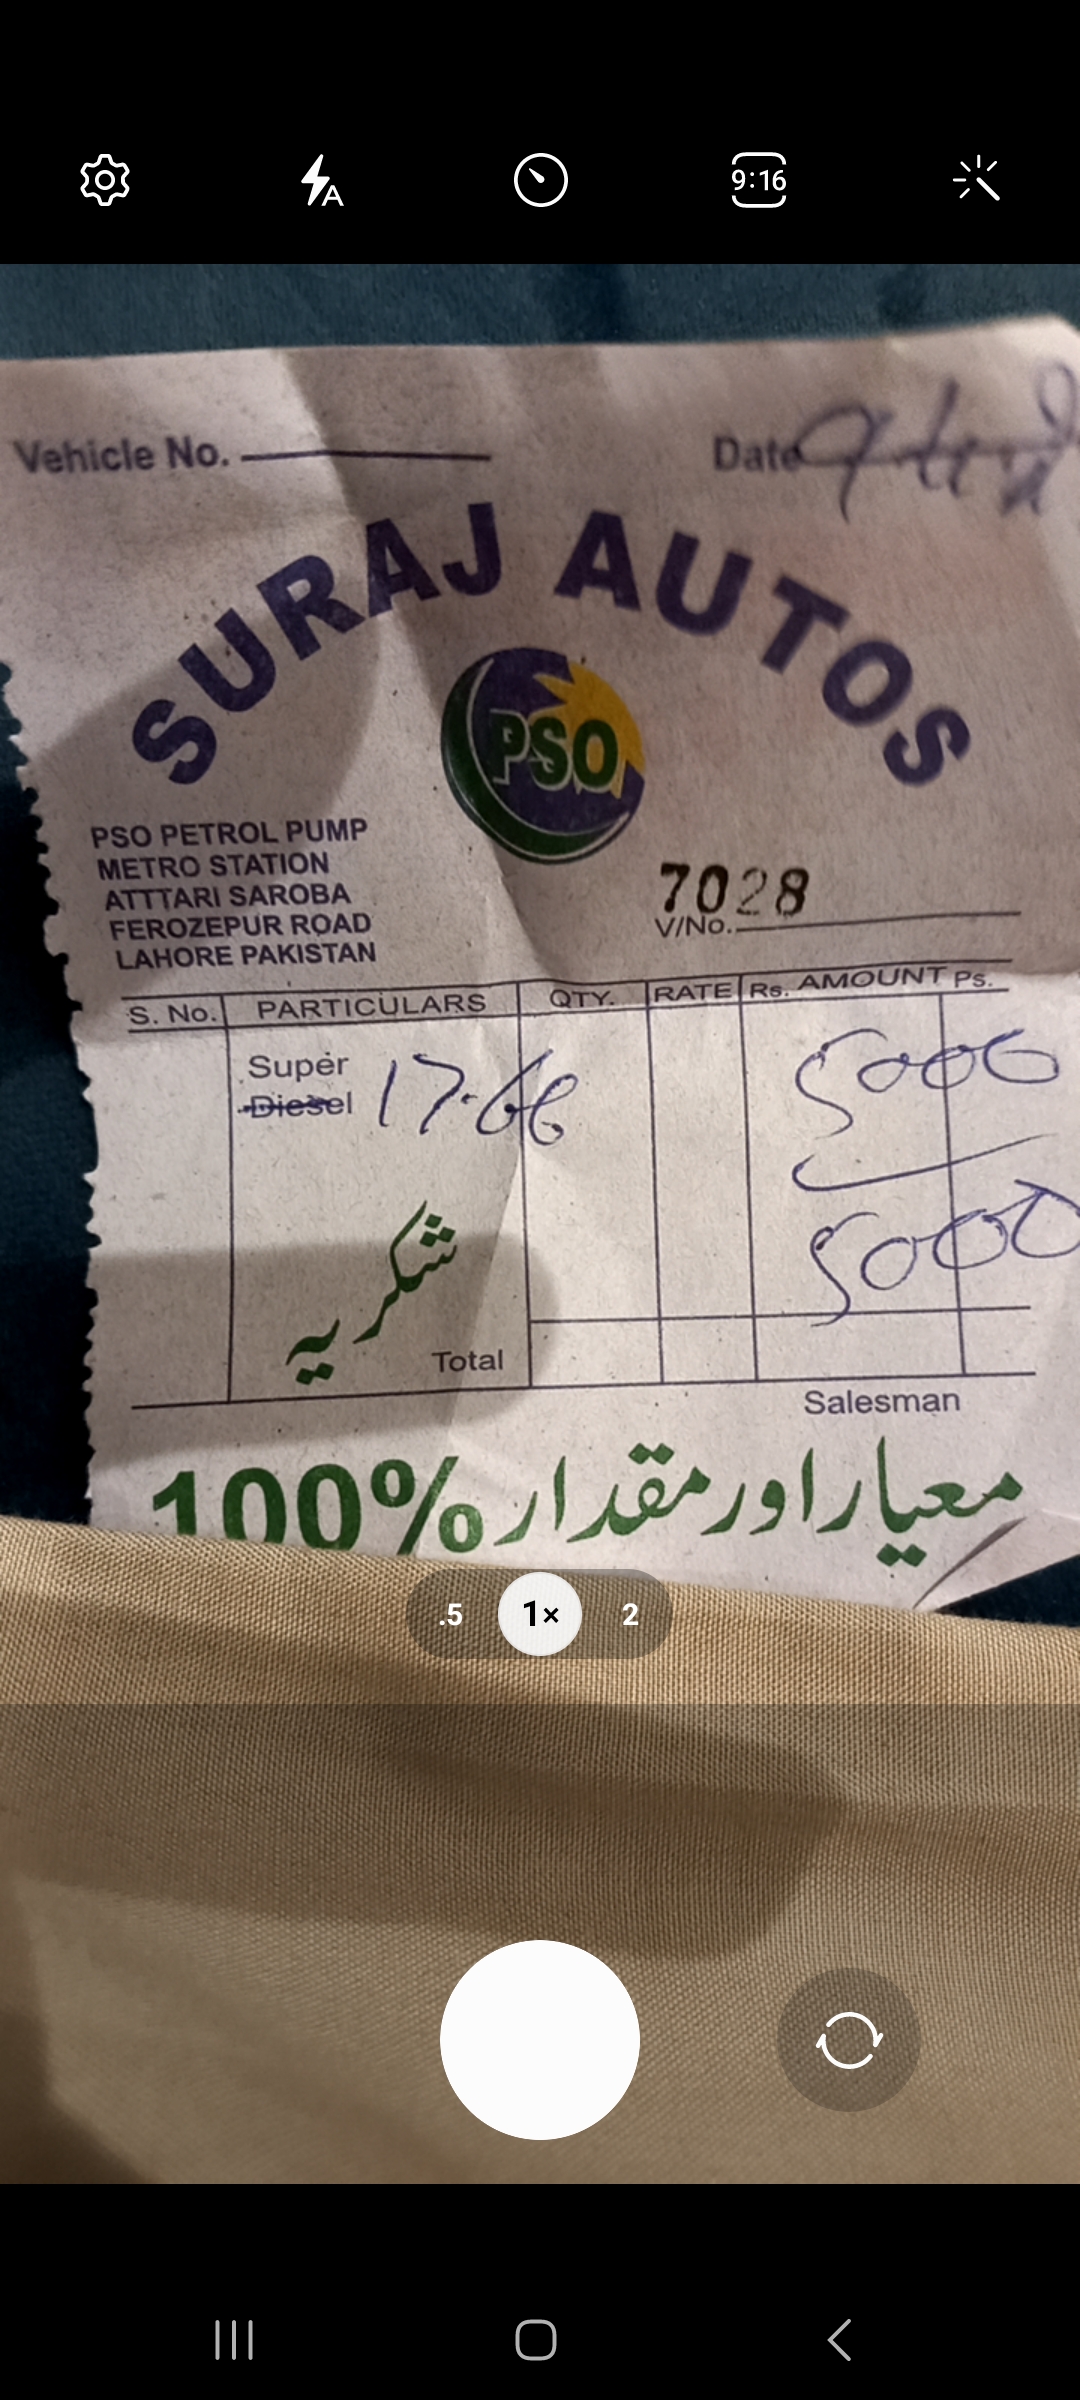 9:16
Vehicle No.
Date
SURAJ AUTOS
PSO
PSO PETROL PUMP
METRO STATION
ATTTARI SAROBA
FEROZEPUR ROAD
LAHORE PAKISTAN
7028
V/No.
S. No. PARTICULARS QTY. RATE Rs. AMOUNT Ps.
Super
Diesel
17.66
5000
5000
شکریہ
Total
Salesman
معیار اور مقدار 100%
.5 1× 2